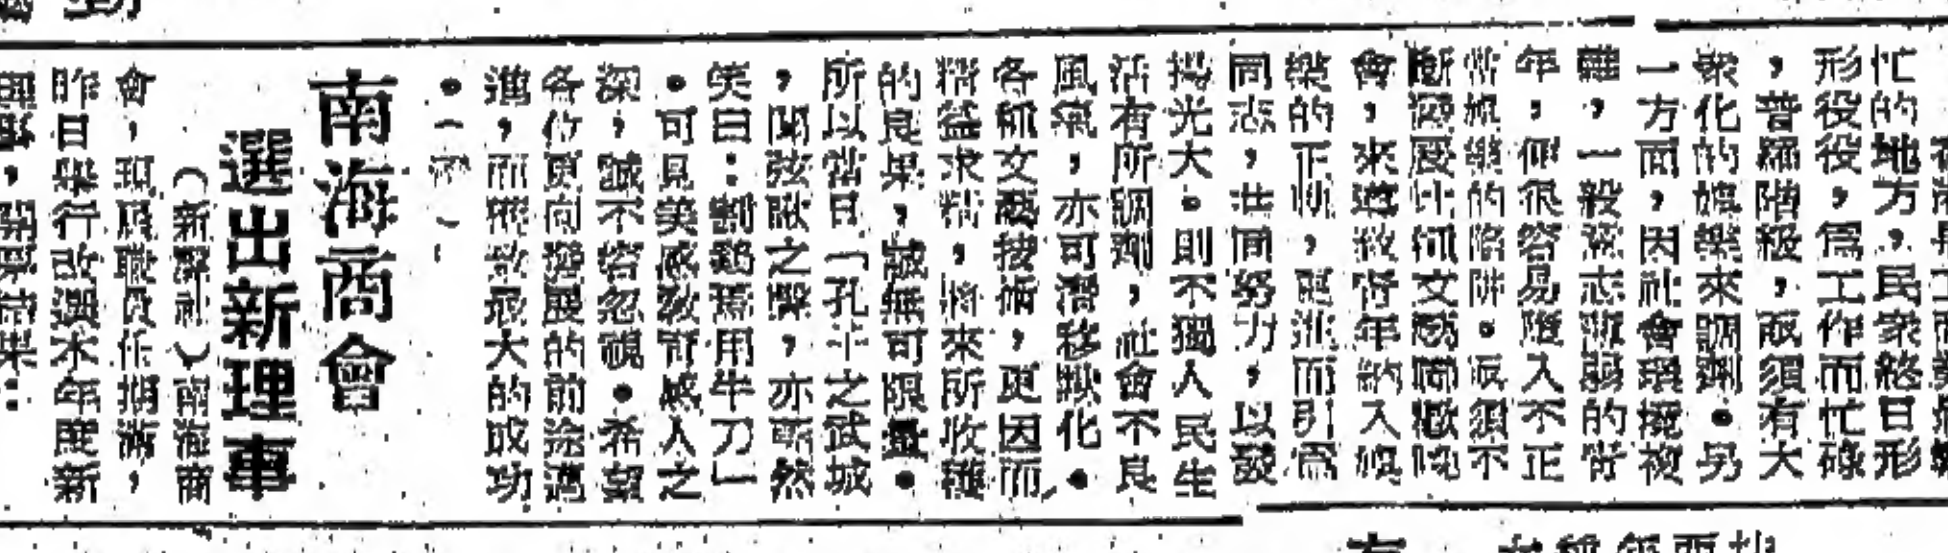 忙的地方，民衆終日形
形役役，爲工作而忙碌
，普羅階級，設須有大
衆化的娛樂來調劑。另
一方面，因社會環境複
雜，一般意志薄弱的青
年，便很容易墮入不正
當娛樂的陷阱。
會，來導致青年納入娛
樂的正軌，更進而引當
同志，共同努力，以發
揚光大。則不獨人民生
活有所調劑，社會不良
風氣，亦可潛移默化。
各種文藝技術，更因而
精益求精，將來所收穫
的良果，誠無可限量。
所以當日「孔子之武城
，聞弦歌之聲，亦莞然
笑曰：割鷄焉用牛刀」
。可見美感教育感人之
深，誠不容忽視。希望
各位更向發展的前途邁
進，而獲致最大的成功
。
南海商會
選出新理事
（新聲社）南海商
會，現屆職員任期滿，
昨日舉行改選本年度新
理事，開票結果：